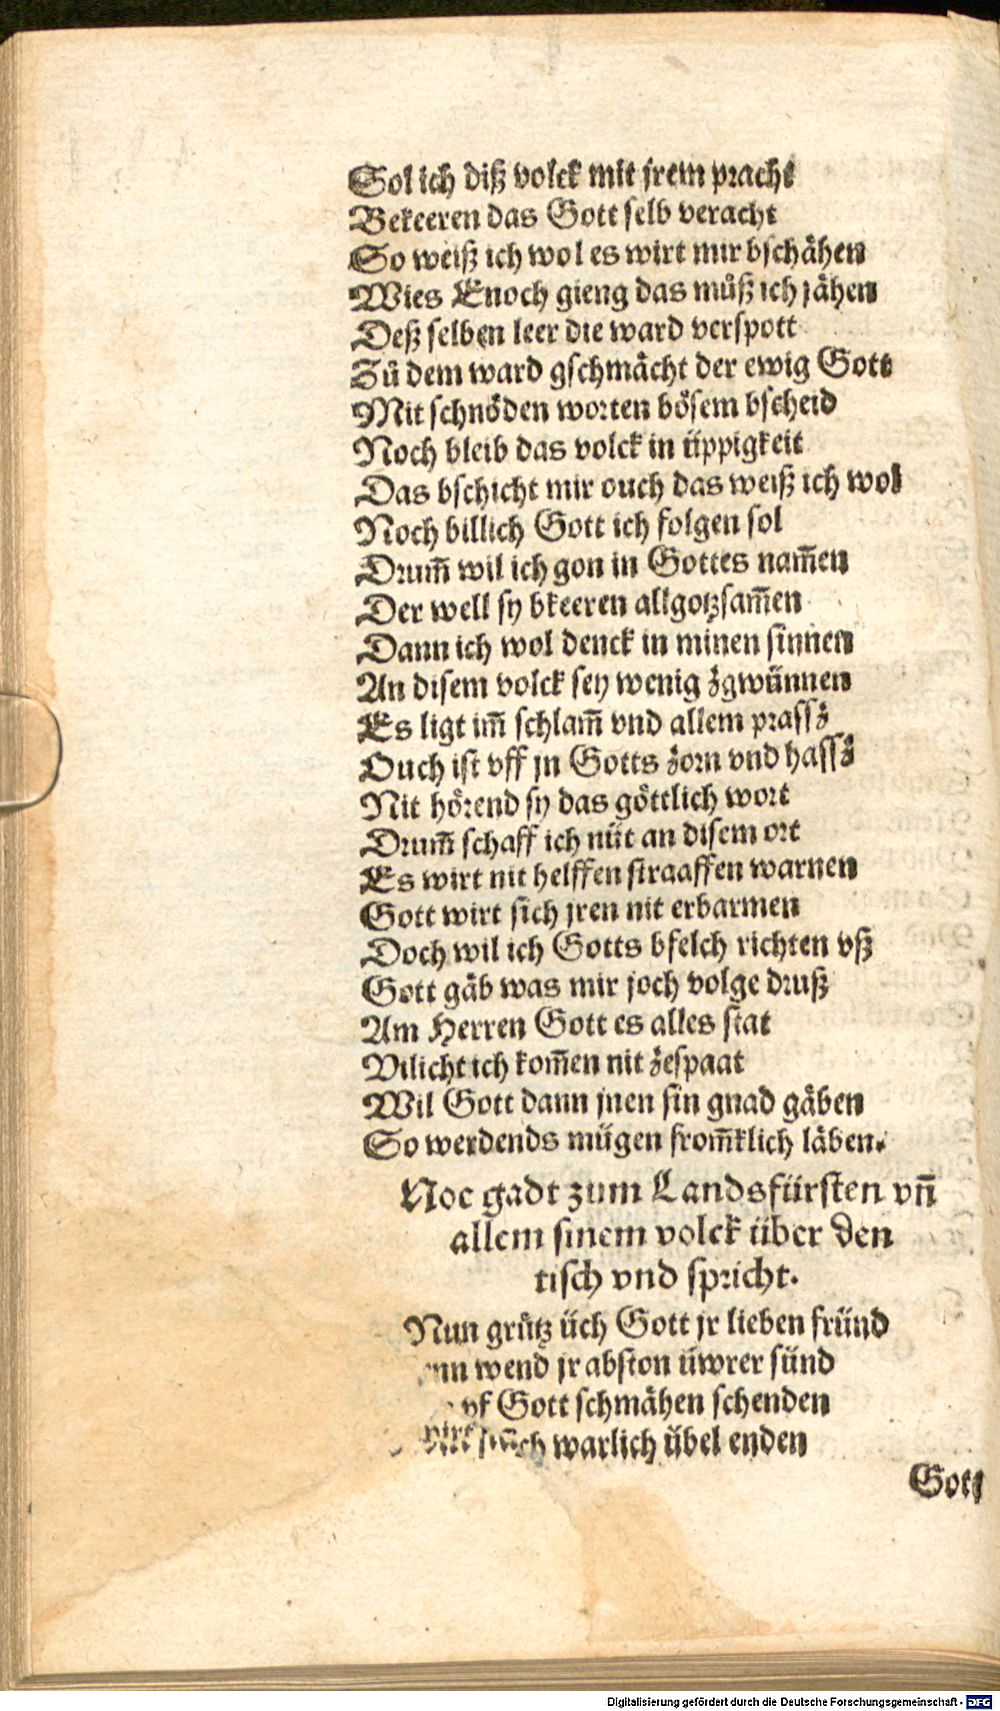 Sol ich diß volck mit jrem pracht
Bekeeren das Gott selb veracht
So weiß ich wol es wirt mir bschähen
Wies Enoch gieng das můß ich jähen
Deß selben leer die ward verspott
Zů dem ward gschmächt der ewig Gott
Mit schnöden worten bösem bscheid
Noch bleib das volck in üppigkeit
Das bschicht mir ouch das weiß ich wol
Noch billich Gott ich folgen sol
Drum̃ wil ich gon in Gottes nam̃en
Der well sy bkeeren allgotzsam̃en
Dann ich wol denck in minen sinnen
An disem volck sey wenig zgwünnen
Es ligt im̃ schlam̃ vnd allem prassz
Ouch ist vff jn Gotts zorn vnd hassz
Nit hörend sy das göttlich wort
Drum̃ schaff ich nüt an disem ort
Es wirt nit helffen straaffen warnen
Gott wirt sich jren nit erbarmen
Doch wil ich Gotts bfelch richten vß
Gott gäb was mir joch volge druß
Am Herren Gott es alles stat
Vilicht ich kom̃en nit zespaat
Wil Gott dann jnen sin gnad gäben
So werdends mügen from̃klich läben.
Noe gadt zum Landsfürsten vñ
allem sinem volck über den
tisch vnd spricht.
Nun grůtz üch Gott jr lieben fründ
wend jr abston üwrer sünd
Gott schmähen schenden
warlich übel enden
Gott
Digitalisierung gefördert durch die Deutsche Forschungsgemeinschaft - DFG